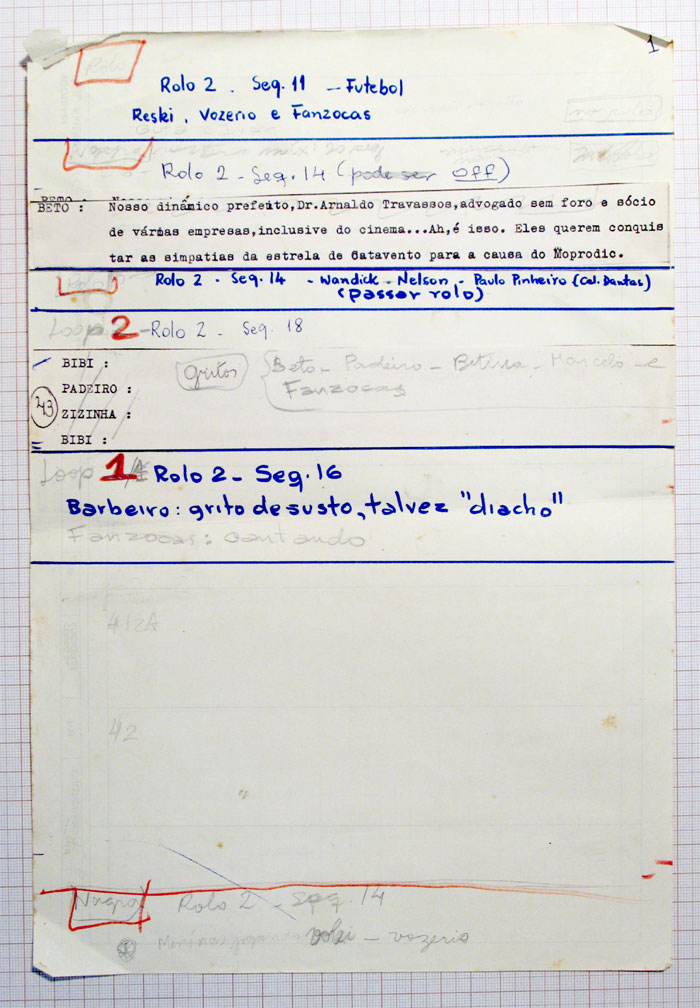 1
Rolo
Rolo 2 . Seq. 11 - Futebol
Reski, Vozerio e Fanzocas
Rolo 2 - Seq. 14 (pode ser OFF)
BETO : Nosso dinâmico prefeito,Dr.Arnaldo Travassos,advogado sem foro e sócio
de várias empresas,inclusive do cinema...Ah,é isso. Eles querem conquis
tar as simpatias da estrela de Catavento para a causa do Moprodic.
Rolo 2 - Seq. 14 - Wandick - Nelson - Paulo Pinheiro (Cel. Dantas)
(passar rolo)
Loop 2 - Rolo 2 - Seq. 18
BIBI : gritos Beto - Padeiro - Betina - Marcelo e
PADEIRO : Fanzocas
43 ZIZINHA :
BIBI :
Loop 1 Rolo 2 - Seq. 16
Barbeiro: grito de susto, talvez "diacho"
Fanzocas: cantando
412A
42
Rolo 2 - Seq. 14
- vozerio